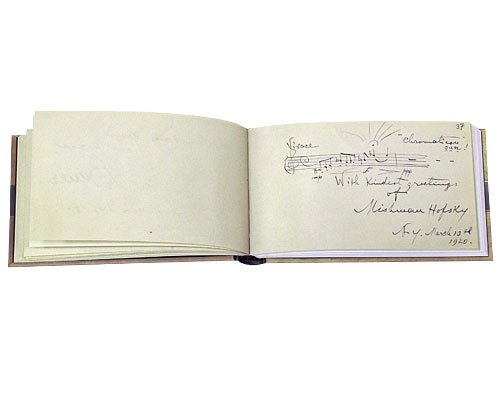 37
Vivace
With kindest greetings
of
Mishman Hofsky
N.Y. March 13th
1920.